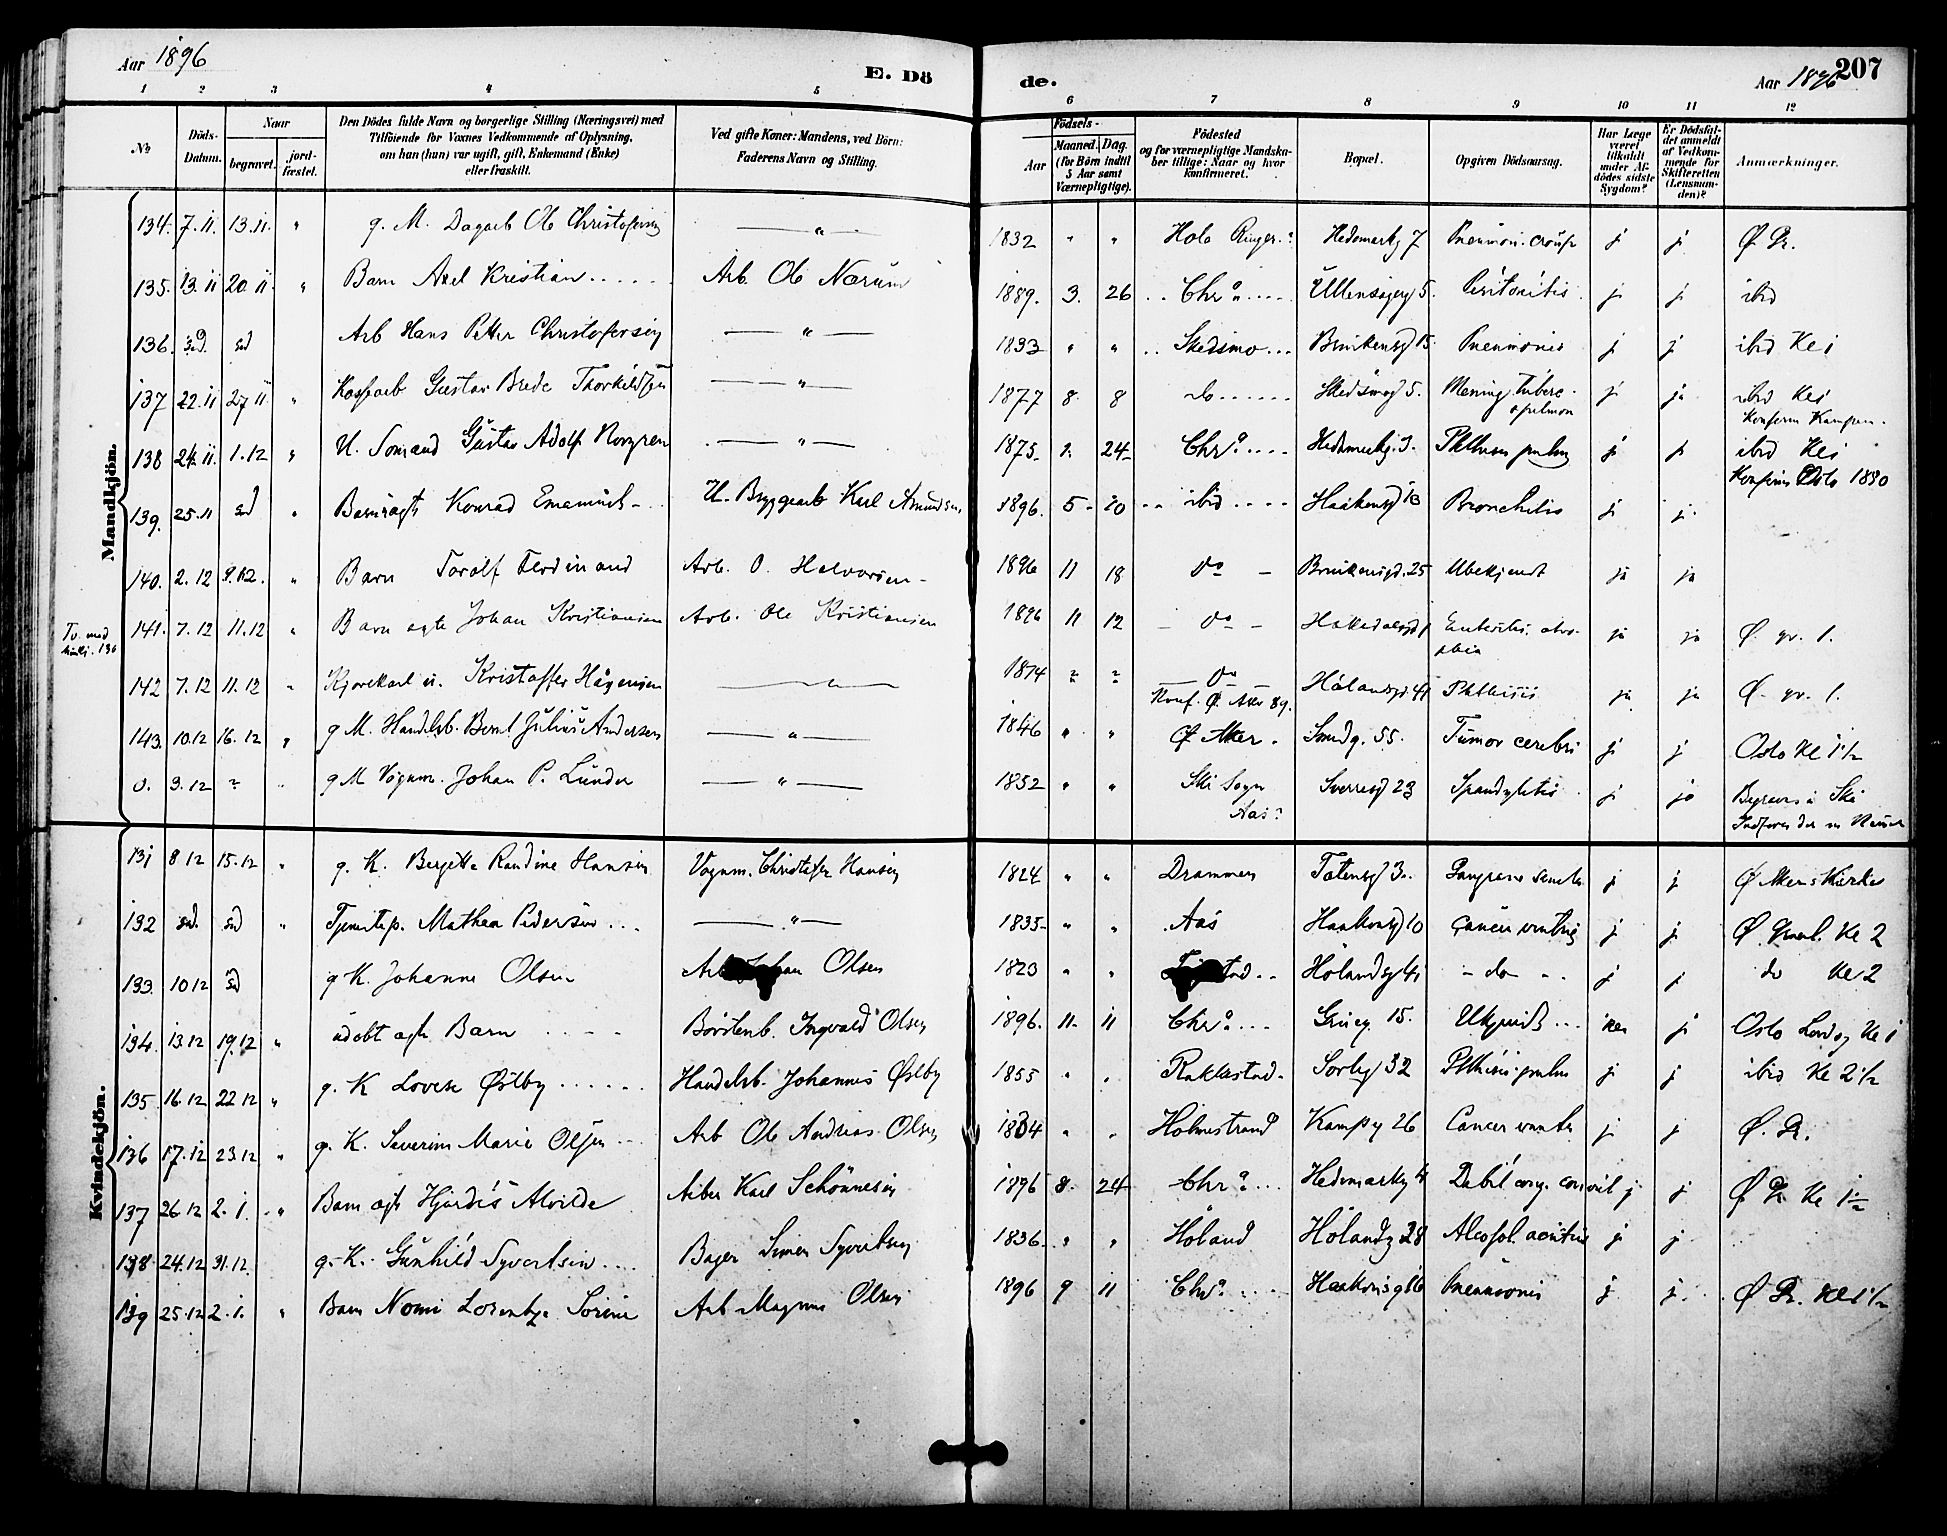 Aar 1896
E. Dö
de.
Aar 1896
207
1 2 3 4 5 6 7 8 9 10 11 12
No
Döds-Datum.
Naar
begravet.
jordfæstet.
Den Dödes fulde Navn og borgerlige Stilling (Næringsvei) med
Tilföiende for Voxnes Vedkommende af Oplysning,
om han (hun) var ugift, gift, Enkemand (Enke)
eller fraskilt.
Ved gifte Koner: Mandens, ved Börn:
Faderens Navn og Stilling.
Födsels-
Aar
Maaned. Dag.
(for Börn indtil
5 Aar samt
Værnepligtige).
Födested
og for værnepligtige Mandska-
ber tillige: Naar og hvor
konfirmeret.
Bopæl.
Opgiven Dödsaarsag.
Har Læge
været
tilkaldt
under Af-
dödes sidste
Sygdom?
Er Dödsfal-
det anmeldt
af Vedkom-
mende for
Skifteretten
(Lensman-
den)?
Anmærkninger.
Mandkjön.
134. 7.11. 13.11. " g. M. Dagarb Ole Christofersen — " — 1832 " " Hole Ringer. Hedemarkg 7 Pneumoni. croup j j Ø. Gr.
135. 13.11 20.11 " Barn Axel Kristian Arb. Ole Nærum 1889. 3. 26 Chr.a Ullensagerg 5. Peritonitis j j ibid
136. sd. sd Arb Hans Petter Christofersen — " — 1833 " " Skedsmo Brinkensgd 15. Pneumonia j j ibid Kl 1
137 22.11 27.11 " Gustav Brede Thorkildsen — " — 1877 8. 8 do Skedsmog 5. Mening. tuberc. j ja ibid Kl 1
& pulmon
Konfirm Kampen.
138 24.11. 1.12 " U. Sømand Gustav Adolf Norgren — " — 1875. 1. 24 Chr.a Hedemarkg. 3. Phthisis pulm j j ibid Kl 1
Konfirm Oslo 1890
139. 25.11 sd " Barn ægte Konrad Emanuel U. Bryggearb Karl Amundsen 1896. 5 10 ibid Haakonsg 13 Bronchitis j j.
140. 2.12 9.12. " Barn Toralf Ferdinand Arb. O. Halvorsen 1896 11 18 do Brinkensgd. 25 Ubekjendt ja ja
141. 7.12 11.12 " Barn ægte Johan Kristiansen Arb. Ole Kristiansen 1896 11 12 do Hakedalsgd 1 Enteritis, atro- ja ja Ø. gr. 1.
phia
Tv. med
142 7.12 11.12 " Kjørekarl u. Kristoffer Hågensen — " — 1874 ? ? do Hølandsgd. 41 Phthisis ja ja Ø. gr. 1.
Konf. Ø. Aker 89.
143. 10.12 16.12 " g M. Handelsb. Bernt Julius Andersen — " — 1846 " " Ø Aker. Smedg. 55. Tumor cerebri j j Oslo Kl 1 1/2
0. 3.12 " " g M Vognm. Johan P. Lunder — " — 1852 " " Ski Sogn Sverresgd 23 Spondylitis j ja Begraves i Ski
Aas
Indføres der
Kvindekjön.
131 8 12 15.12 " g. K. Bergitte Randine Hansen Vognm. Christoffer Hansen 1824 " " Drammen Totensgd 3. j j Ø Akers Kirke
132 sd. sd " Tjenestep. Mathea Pedersen — " — 1835 " " Aas Haakonsgd 10 Cancer ventric j j Ø Kl 2
133. 10 12 sd g K. Johanne Olsen Arb Johan Olsen 1823 " " Hølandsg 41 — do — j j do Kl 2
134. 13.12 19.12 " udøbt ægte Barn Børstenb. Ingvald Olsen 1896. 11. 11 Chr.a Grüneg. 15. nei j Oslo Kl 1
135 16.12 22 12 " g. K Lovise Østby Handelsb. Johannes Østby 1855 " " Rakkestad. Sørligd 32 Phthisis pulm j j ibid Kl 2 1/2
136 17.12 23.12 " g. K. Severine Marie Olsen Arb Ole Andreas Olsen 1804 " " Holmestrand Kampg 26 Cancer ventr j j Ø. Gr.
137 26.12 2.1. " Barn ægte Hjørdis Alvilde Arber Karl Schønnesen 1896 8. 24 Chr.a Hedemarkg 4 Debil cong. j j Ø Gr Kl 1 1/2
138 24.12 31.12. g. K. Gunhild Syvertsen Bager Simen Syvertsen 1836. " " Høland Hølandg 28 Alcohol. j j
139 25.12 2.1. " Barn Nomi Lorentze Sørine Arb Magnus Olsen 1896 9 11 Chr.a Haakonsg 16 Pneumonia j j. Ø Gr. Kl 1 1/2